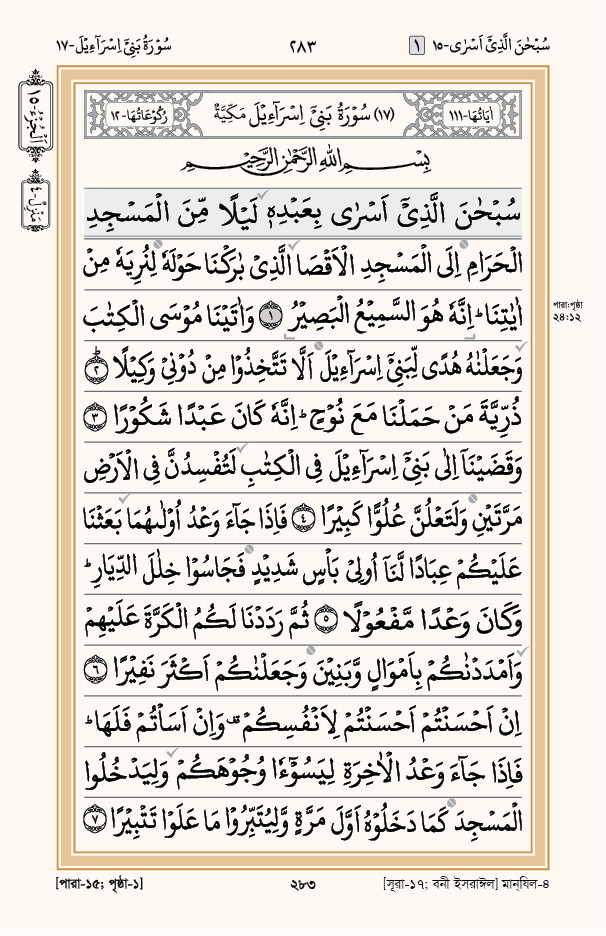 سُبْحٰنَ الَّذِیْۤ اَسْرٰی-١٥ ١
٢٨٣
سُوْرَةُ بَنِیْۤ اِسْرَآءِیْلَ-١٧
اَلْجُزْءُ ١٥
مَنْزِل-٤
اٰیَاتُهَا-١١١
(١٧) سُوْرَةُ بَنِیْۤ اِسْرَآءِیْلَ مَكِّیَّةٌ
رُكُوْعَاتُهَا-١٢
بِسْمِ اللّٰهِ الرَّحْمٰنِ الرَّحِیْمِ
سُبْحٰنَ الَّذِیْۤ اَسْرٰی بِعَبْدِهٖ لَیْلًا مِّنَ الْمَسْجِدِ
الْحَرَامِ اِلَی الْمَسْجِدِ الْاَقْصَا الَّذِیْ بٰرَكْنَا حَوْلَهٗ لِنُرِیَهٗ مِنْ
اٰیٰتِنَا ؕ اِنَّهٗ هُوَ السَّمِیْعُ الْبَصِیْرُ ١ وَاٰتَیْنَا مُوْسَی الْكِتٰبَ
পারা:পৃষ্ঠা
২৪:১২
وَجَعَلْنٰهُ هُدًی لِّبَنِیْۤ اِسْرَآءِیْلَ اَلَّا تَتَّخِذُوْا مِنْ دُوْنِیْ وَكِیْلًا ٢ؕ
ذُرِّیَّةَ مَنْ حَمَلْنَا مَعَ نُوْحٍ ؕ اِنَّهٗ كَانَ عَبْدًا شَكُوْرًا ٣
وَقَضَیْنَاۤ اِلٰی بَنِیْۤ اِسْرَآءِیْلَ فِی الْكِتٰبِ لَتُفْسِدُنَّ فِی الْاَرْضِ
مَرَّتَیْنِ وَلَتَعْلُنَّ عُلُوًّا كَبِیْرًا ٤ فَاِذَا جَآءَ وَعْدُ اُوْلٰىهُمَا بَعَثْنَا
عَلَیْكُمْ عِبَادًا لَّنَاۤ اُولِیْ بَاْسٍ شَدِیْدٍ فَجَاسُوْا خِلٰلَ الدِّیَارِ ؕ
وَكَانَ وَعْدًا مَّفْعُوْلًا ٥ ثُمَّ رَدَدْنَا لَكُمُ الْكَرَّةَ عَلَیْهِمْ
وَاَمْدَدْنٰكُمْ بِاَمْوَالٍ وَّبَنِیْنَ وَجَعَلْنٰكُمْ اَكْثَرَ نَفِیْرًا ٦
اِنْ اَحْسَنْتُمْ اَحْسَنْتُمْ لِاَنْفُسِكُمْ ۫ وَاِنْ اَسَاْتُمْ فَلَهَا ؕ
فَاِذَا جَآءَ وَعْدُ الْاٰخِرَةِ لِیَسُوْٓءٗا وُجُوْهَكُمْ وَلِیَدْخُلُوا
الْمَسْجِدَ كَمَا دَخَلُوْهُ اَوَّلَ مَرَّةٍ وَّلِیُتَبِّرُوْا مَا عَلَوْا تَتْبِیْرًا ٧
[পারা-১৫; পৃষ্ঠা-১]
২৮৩
[সূরা-১৭; বনী ইসরাঈল] মান্‌যিল-৪